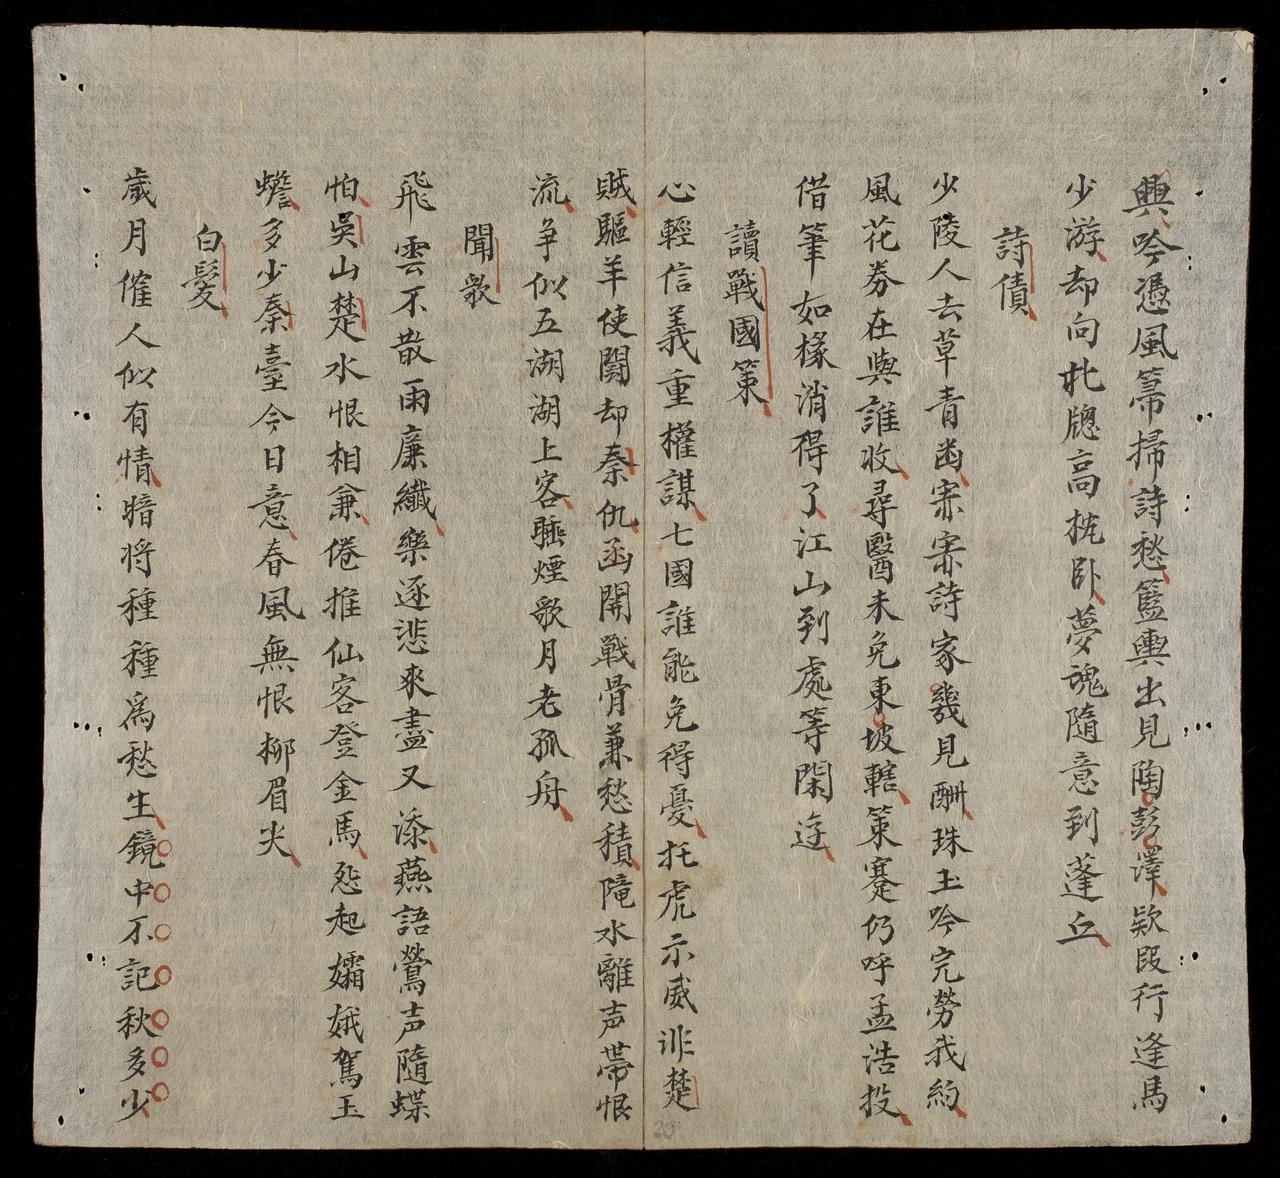 興吟憑風箒掃詩愁籃輿出見陶彭澤欵段行逢馬
少游却向北牕高枕卧夢魂隨意到蓬丘
詩債
少陵人去草青凾寀寀詩家幾見酬珠玉吟完勞我約
風花券在與誰收尋醫未免東坡轄策蹇仍呼孟浩投
借筆如椽消得了江山到處等閑遊
讀戰國策
心輕信義重權謀七國誰能免得憂托虎示威非楚
賊驅羊使鬪却秦仇函開戰骨兼愁積隴水離声帶恨
流争似五湖湖上客睡煙歌月老孤舟
聞歌
飛雲不散雨廉纖樂逐悲來盡又添燕語鶯声隨蝶
怕吳山楚水恨相兼倦推仙客登金馬愁起孀娥駕玉
蟾多少秦臺今日意春風無恨柳眉尖
白髮
歲月催人似有情暗将種種爲愁生鏡中不記秋多少